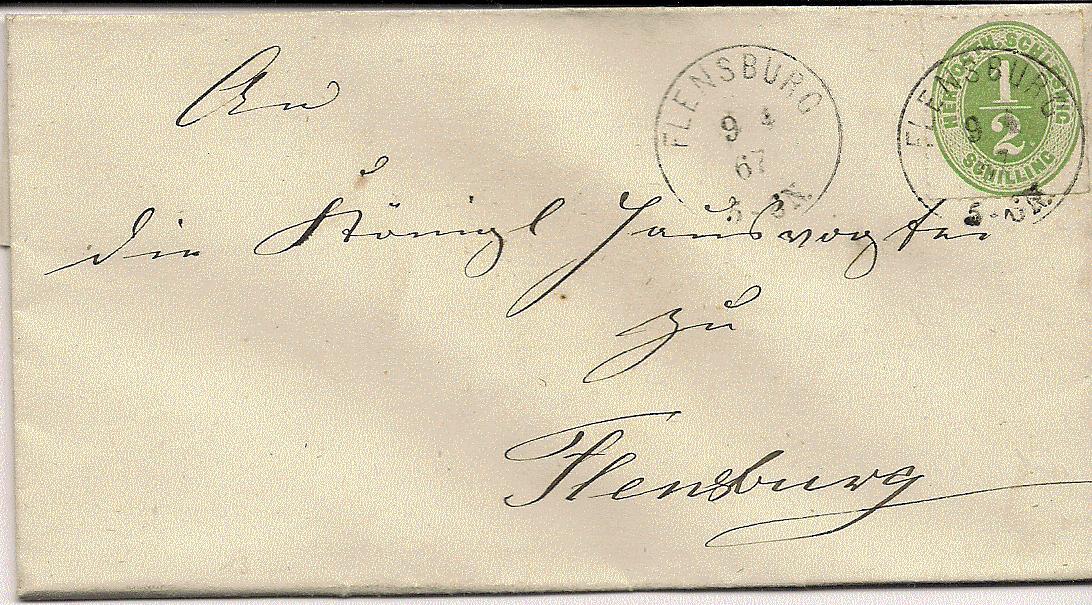 An
die Königl Hausvogtei
zu
Flensburg
FLENSBURG
9 4
67
5-6N.
FLENSBURG
9
7
5-6N.
HERZOGTH. SCHLESWIG
1/2
SCHILLING